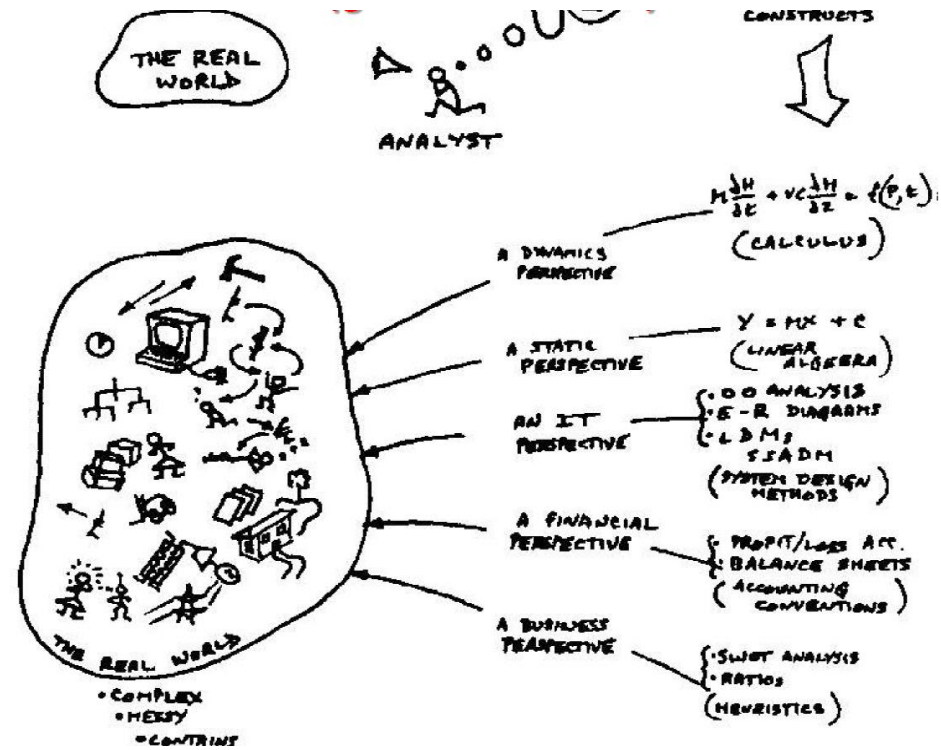 CONSTRUCTS
THE REAL
WORLD
ANALYST
M ∂H/∂t + VC ∂H/∂z = f(P,t)
(CALCULUS)
A DYNAMICS
PERSPECTIVE
Y = MX + C
(LINEAR
ALGEBRA)
A STATIC
PERSPECTIVE
• OO ANALYSIS
• E-R DIAGRAMS
• LDMs
SSADM
(SYSTEM DESIGN
METHODS)
AN IT
PERSPECTIVE
A FINANCIAL
PERSPECTIVE
• PROFIT/LOSS ACC.
• BALANCE SHEETS
(ACCOUNTING
CONVENTIONS)
A BUSINESS
PERSPECTIVE
• SWOT ANALYSIS
• RATIOS
(HEURISTICS)
THE REAL WORLD
• COMPLEX
• MESSY
• CONTAINS